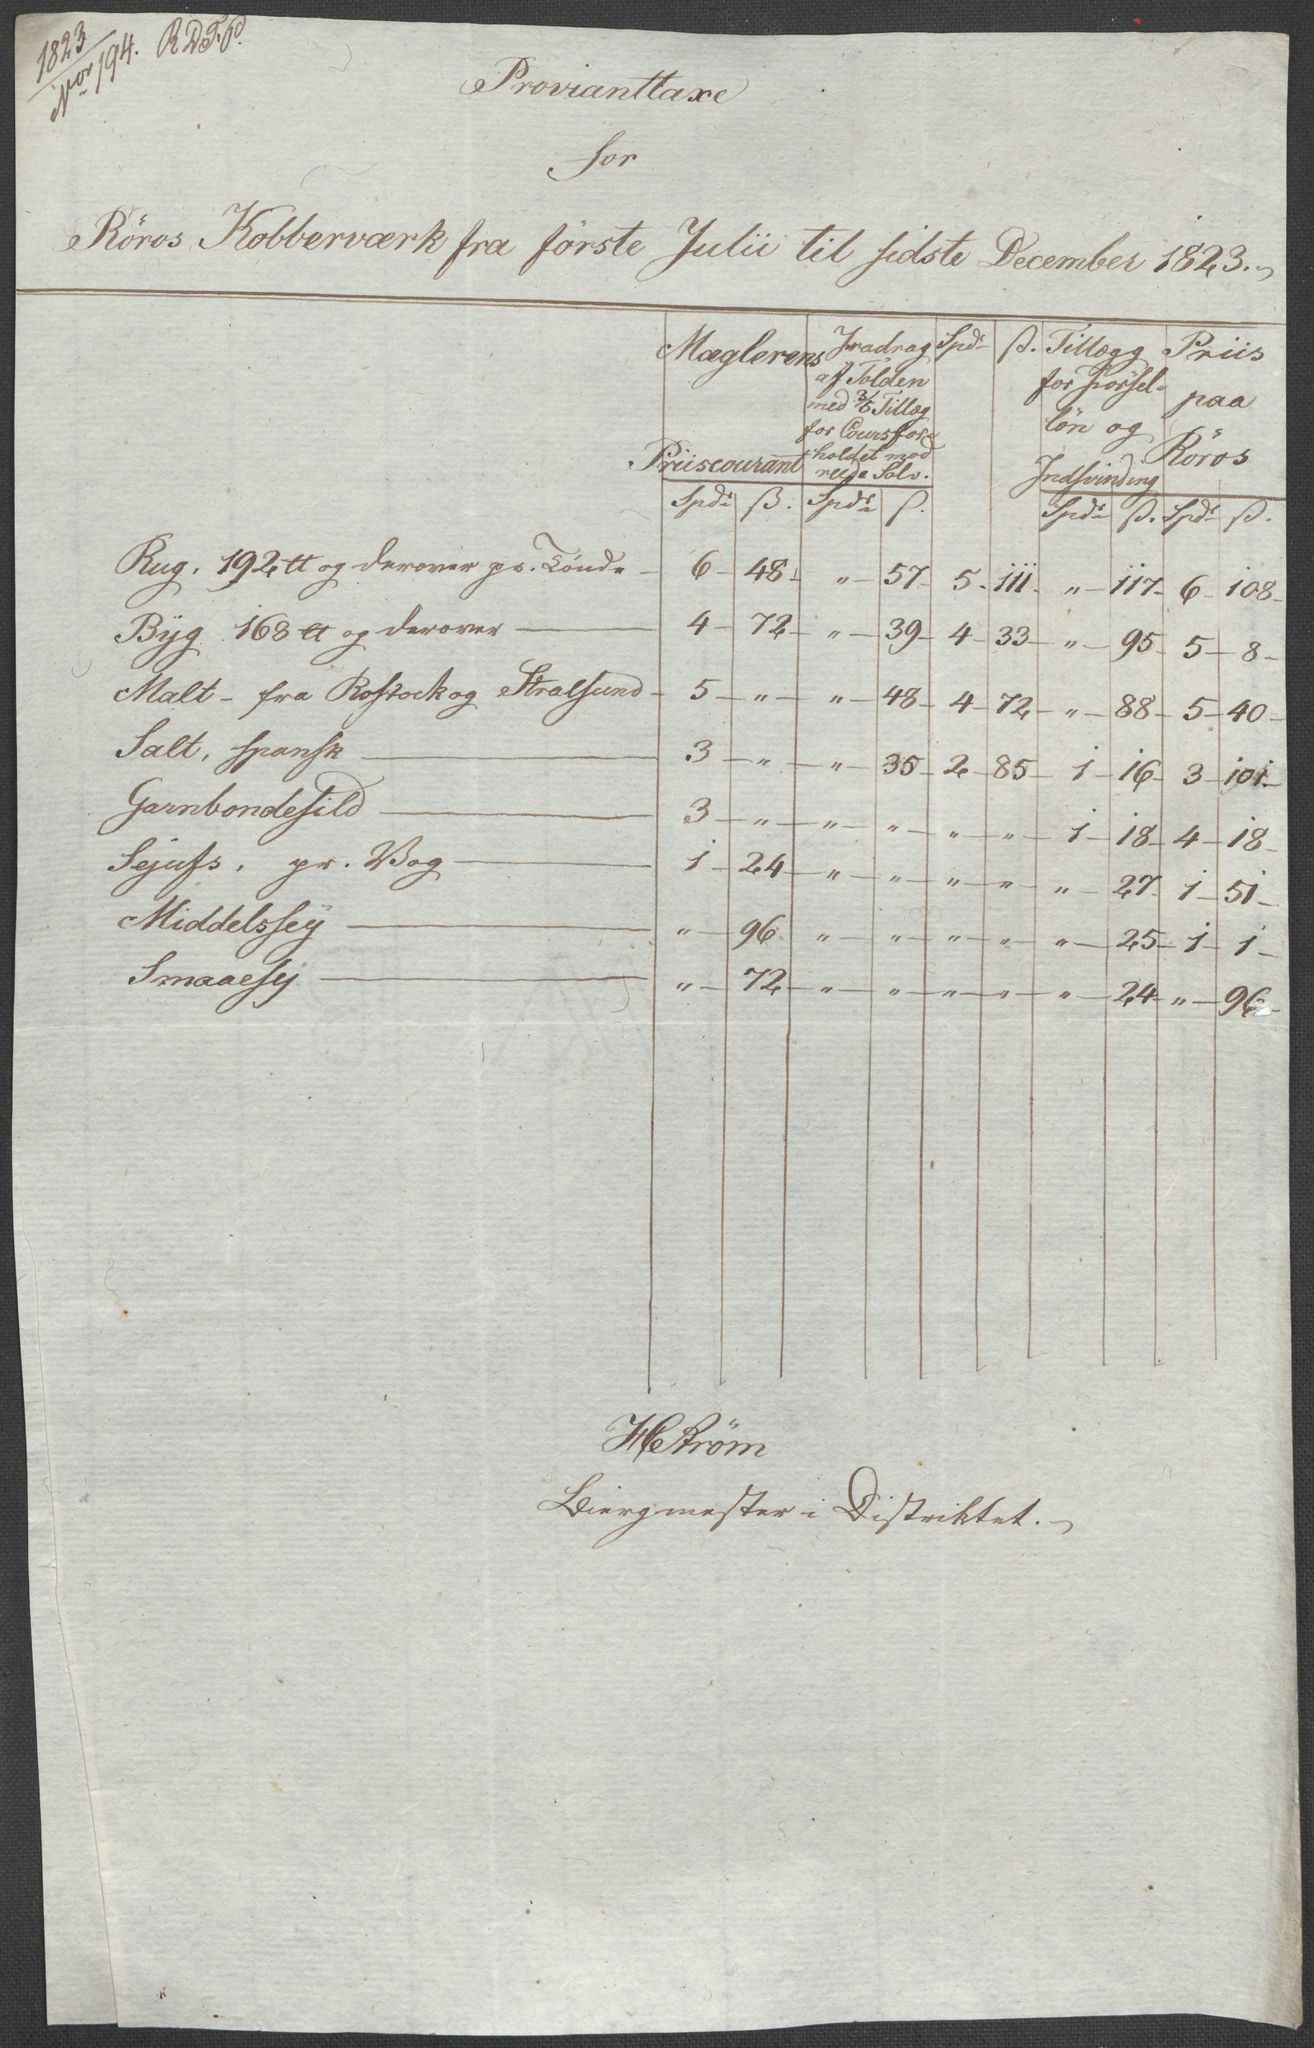 1823
Nor 194. R D T. p.
Provianttaxe
for
Röros Kobberværk fra förste Julii til sidste December 1823.
Mæglerens Priiscourant | Fradrag af Tolden med 3/5 Tillæg for Coursforholdet mod reede Sölv. | Spdr | ß. | Tillægg for Försellön og Indsvinding | Priis paa Röros
Spdr | ß. | Spdr | ß. | Spdr | ß. | Spdr | ß.
Rug, 192 ℔ og derover pr. Tönde — 6 — 48 — " — 57 — 5 — 111 — " — 117 — 6 — 108 —
Byg 168 ℔ og derover — 4 — 72 — " — 39 — 4 — 33 — " — 95 — 5 — 8 —
Malt — fra Rostock og Stralsund — 5 — " — " — 48 — 4 — 72 — " — 88 — 5 — 40 —
Salt, spansk — 3 — " — " — 35 — 2 — 85 — 1 — 16 — 3 — 101 —
Garnbondesild — 3 — " — " — " — " — " — 1 — 18 — 4 — 18 —
Sejufs, pr. Vog — 1 — 24 — " — " — " — " — " — 27 — 1 — 51 —
Middelssey — " — 96 — " — " — " — " — " — 25 — 1 — 1 —
Smaaesej — " — 72 — " — " — " — " — " — 24 — " — 96 —
HC Ström
Biergmester i Distriktet.